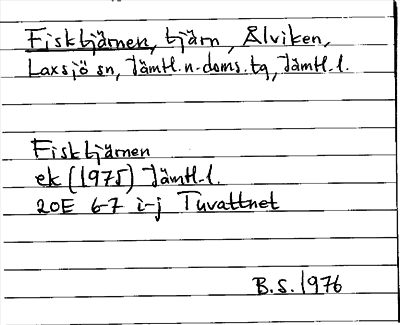 Fisktjärnen, tjärn, Ålviken,
Laxsjö sn, Jämtl.n.doms.tg, Jämtl.l.
Fisktjärnen
ek (1975) Jämtl.l.
20E 6-7 i-j Tuvattnet
B.S. 1976